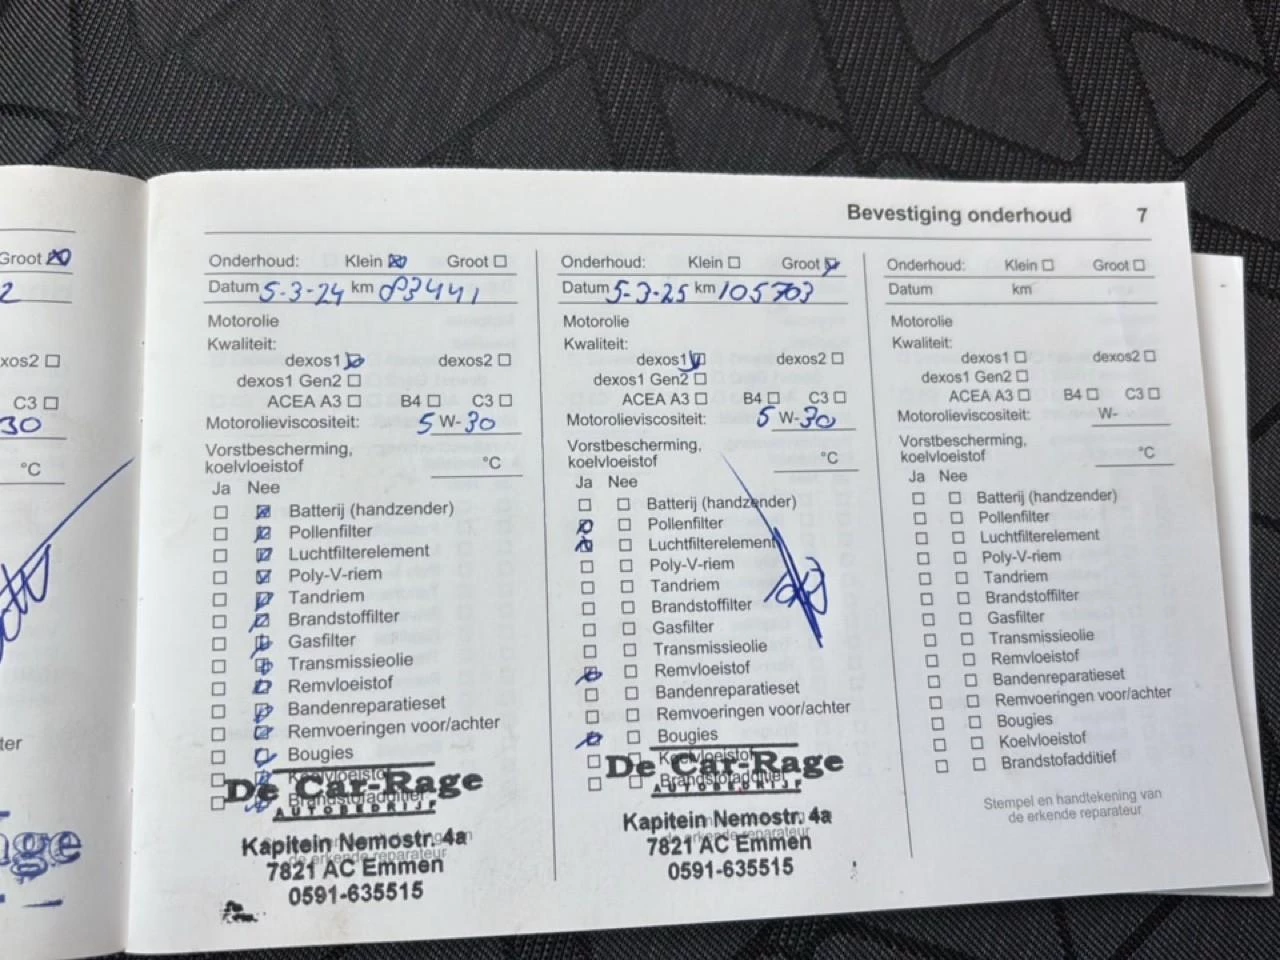 Groot
2
xos2
C3
30
°C
ter
age
Bevestiging onderhoud 7
Onderhoud: Klein Groot
Datum 5-3-24 km 083441
Motorolie
Kwaliteit:
dexos1 dexos2
dexos1 Gen2
ACEA A3 B4 C3
Motorolieviscositeit: 5 W-30
Vorstbescherming,
koelvloeistof °C
Ja Nee
Batterij (handzender)
Pollenfilter
Luchtfilterelement
Poly-V-riem
Tandriem
Brandstoffilter
Gasfilter
Transmissieolie
Remvloeistof
Bandenreparatieset
Remvoeringen voor/achter
Bougies
Koelvloeistof
Brandstofadditief
De Car-Rage
AUTOBEDRIJF
Kapitein Nemostr. 4a
de erkende reparateur
7821 AC Emmen
0591-635515
Onderhoud: Klein Groot
Datum 5-3-25 km 105703
Motorolie
Kwaliteit:
dexos1 dexos2
dexos1 Gen2
ACEA A3 B4 C3
Motorolieviscositeit: 5 W-30
Vorstbescherming,
koelvloeistof °C
Ja Nee
Batterij (handzender)
Pollenfilter
Luchtfilterelement
Poly-V-riem
Tandriem
Brandstoffilter
Gasfilter
Transmissieolie
Remvloeistof
Bandenreparatieset
Remvoeringen voor/achter
Bougies
Koelvloeistof
Brandstofadditief
De Car-Rage
AUTOBEDRIJF
Kapitein Nemostr. 4a
de erkende reparateur
7821 AC Emmen
0591-635515
Onderhoud: Klein Groot
Datum km
Motorolie
Kwaliteit:
dexos1 dexos2
dexos1 Gen2
ACEA A3 B4 C3
Motorolieviscositeit: W-
Vorstbescherming,
koelvloeistof °C
Ja Nee
Batterij (handzender)
Pollenfilter
Luchtfilterelement
Poly-V-riem
Tandriem
Brandstoffilter
Gasfilter
Transmissieolie
Remvloeistof
Bandenreparatieset
Remvoeringen voor/achter
Bougies
Koelvloeistof
Brandstofadditief
Stempel en handtekening van
de erkende reparateur